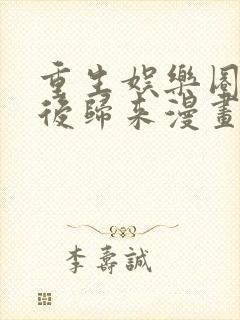 重生娛樂圈
後歸來漫畫
李壽誠